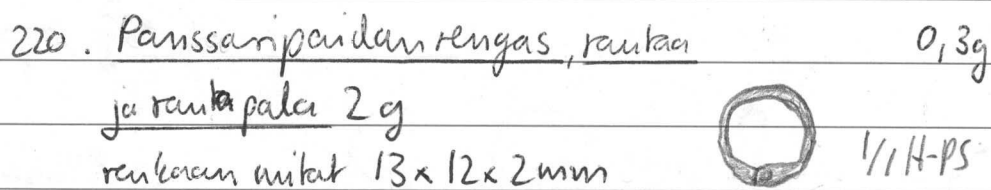 220. Panssaripaidan rengas, rautaa 0,3g
ja rautapala 2 g
renkaan mitat 13 x 12 x 2 mm 1/1 H-PS